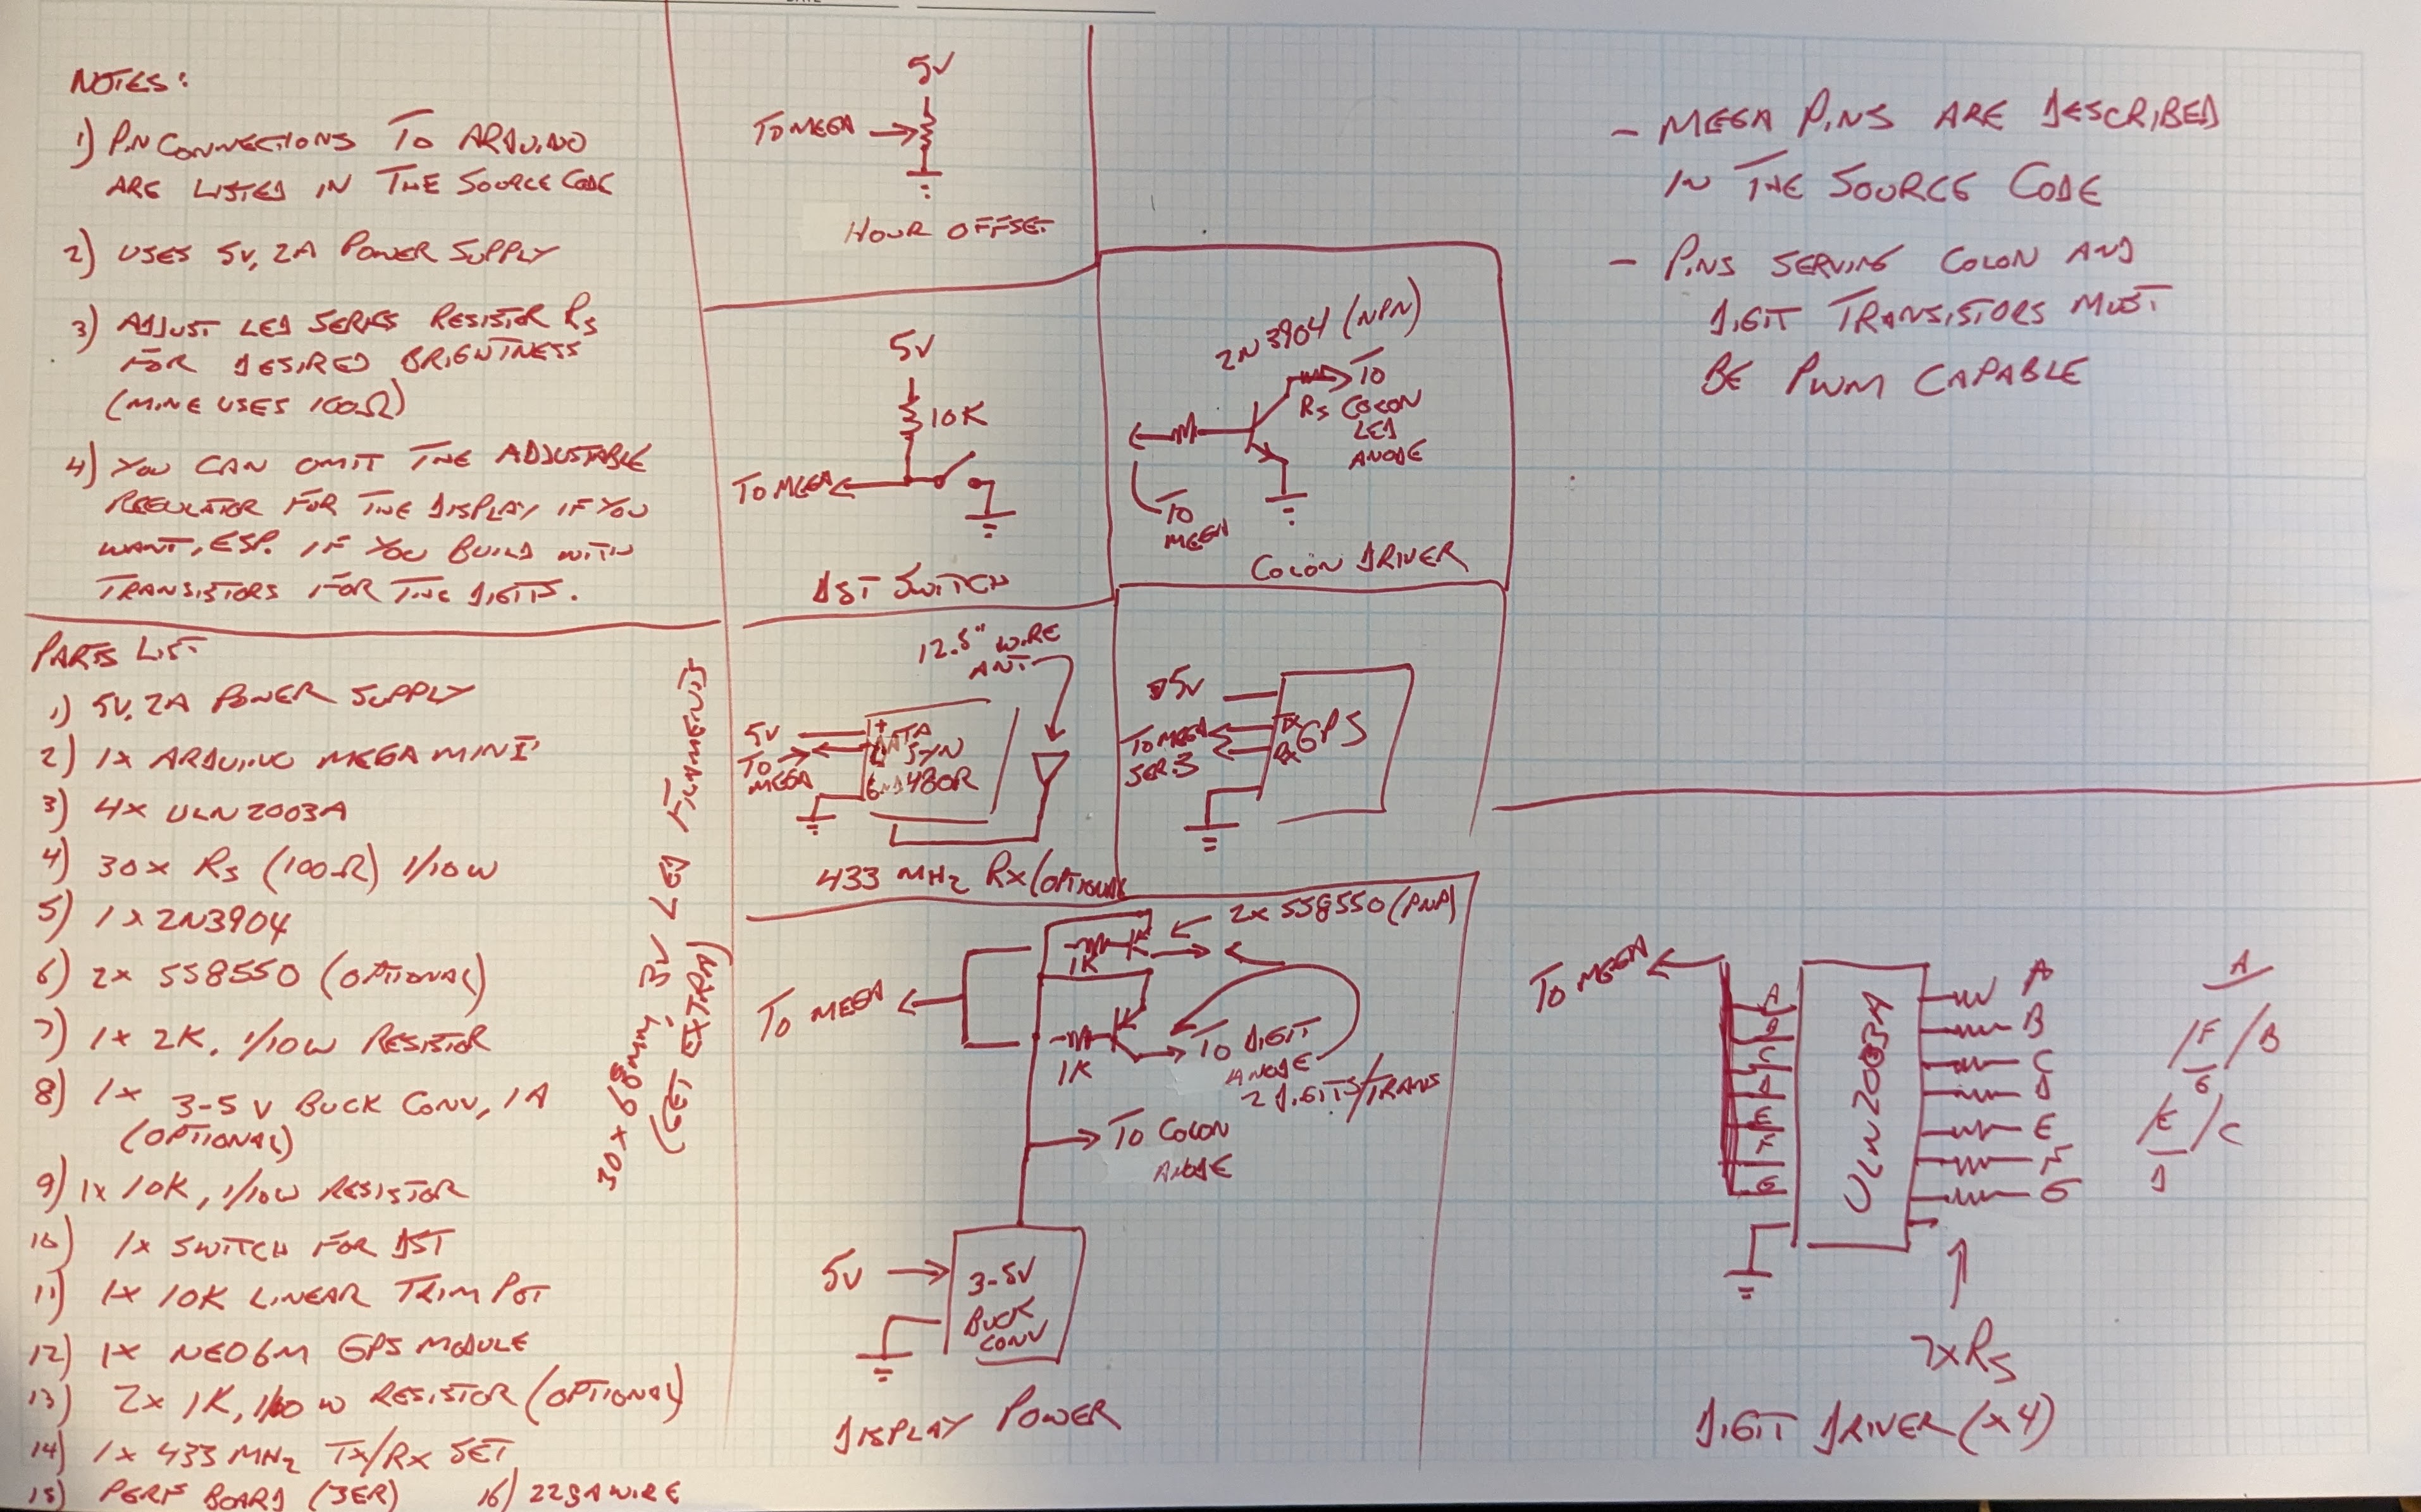 NOTES:
1) PIN CONNECTIONS TO ARDUINO
ARE LISTED IN THE SOURCE CODE
2) USES 5V, 2A POWER SUPPLY
3) ADJUST LED SERIES RESISTOR Rs
FOR DESIRED BRIGHTNESS
(MINE USES 100Ω)
4) YOU CAN OMIT THE ADJUSTABLE
REGULATOR FOR THE DISPLAY IF YOU
WANT, ESP. IF YOU BUILD WITH
TRANSISTORS FOR THE DIGITS.
PARTS LIST
1) 5V, 2A POWER SUPPLY
2) 1x ARDUINO MEGA MINI
3) 4x ULN2003A
4) 30x Rs (100Ω) 1/10W
5) 1x 2N3904
6) 2x SS8550 (OPTIONAL)
7) 1x 2K, 1/10W RESISTOR
8) 1x 3-5V BUCK CONV, 1A
(OPTIONAL)
9) 1x 10K, 1/10W RESISTOR
10) 1x SWITCH FOR DST
11) 1x 10K LINEAR TRIM POT
12) 1x NEO6M GPS MODULE
13) 2x 1K, 1/10W RESISTOR (OPTIONAL)
14) 1x 433 MHz TX/RX SET
15) PERF BOARD (3ER)
16) 22GA WIRE
30x 68mm, 3V LED FILAMENTS
(GET EXTRA)
5V
TO MEGA
HOUR OFFSET
5V
10K
TO MEGA
DST SWITCH
2N3904 (NPN)
TO
Rs COLON
LED
ANODE
TO
MEGA
COLON DRIVER
12.5" WIRE
ANT
5V
TO
MEGA
+
DATA
SYN
GND 480R
433 MHz RX (OPTIONAL)
5V
TO MEGA
SER.3
TX
RX
GPS
2x SS8550 (PNP)
1K
TO MEGA
1K
TO DIGIT
ANODE
2 DIGITS/TRANS
TO COLON
ANODE
5V
3-5V
BUCK
CONV
DISPLAY POWER
- MEGA PINS ARE DESCRIBED
IN THE SOURCE CODE
- PINS SERVING COLON AND
DIGIT TRANSISTORS MUST
BE PWM CAPABLE
TO MEGA
A
B
C
D
E
F
G
ULN2003A
A
B
C
D
E
F
G
A
F B
G
E C
D
7xRs
DIGIT DRIVER (x4)